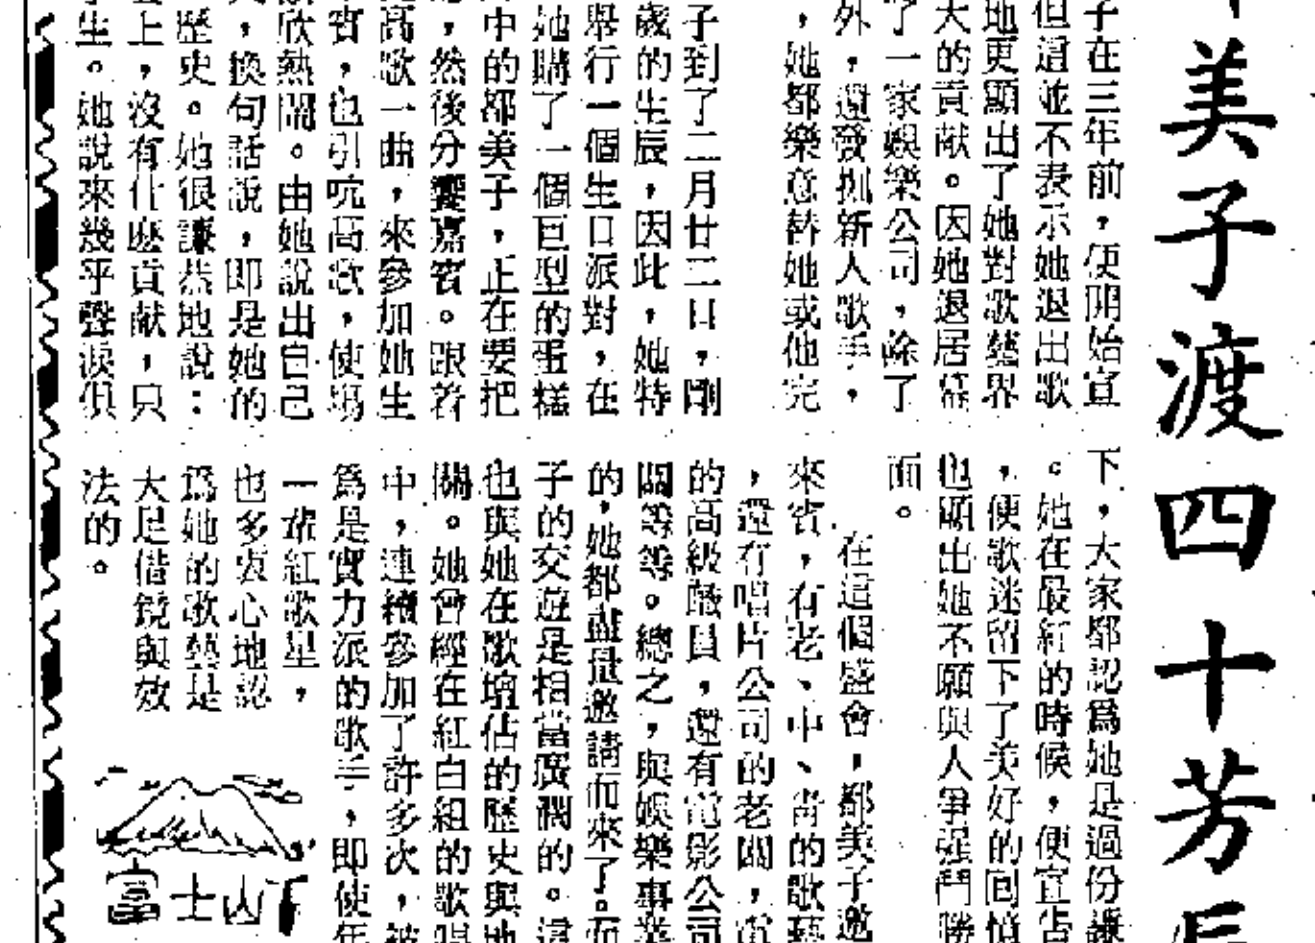 美子渡四十芳辰
子在三年前，便開始宣
但這並不表示她退出歌
地更顯出了她對歌藝界
大的貢献。因她退居幕
了一家娛樂公司，除了
外，還發掘新人歌手，
，她都樂意替她或他完
子到了二月廿二日，剛
歲的生辰，因此，她特
舉行一個生日派對，在
她購了一個巨型的蛋糕
中的都美子，正在要把
，然後分饗嘉賓。跟着
高歌一曲，來參加她生
賓，也引吭高歌，使場
欣熱鬧。由她說出自己
，換句話說，即是她的
歷史。她很謙恭地說：
上，沒有什麽貢献，只
生。她說來幾乎聲淚俱
下，大家都認爲她是過份謙
。她在最紅的時候，便宣告
，便歌迷留下了美好的回憶
也顯出她不願與人爭强鬥勝
面。
在這個盛會，都美子邀
來賓，有老、中、青的歌藝
，還有唱片公司的老闆，電
的高級職員，還有電影公司
闆等等。總之，與娛樂事業
的，她都盡量邀請而來了。而
子的交遊是相當廣濶的。這
也與她在歌壇佔的歷史與地
關。她曾經在紅白組的歌唱
中，連續參加了許多次，被
爲是實力派的歌手，即使年
一輩紅歌星，
也多衷心地認
爲她的歌藝是
大足借鏡與效
法的。
富士山下